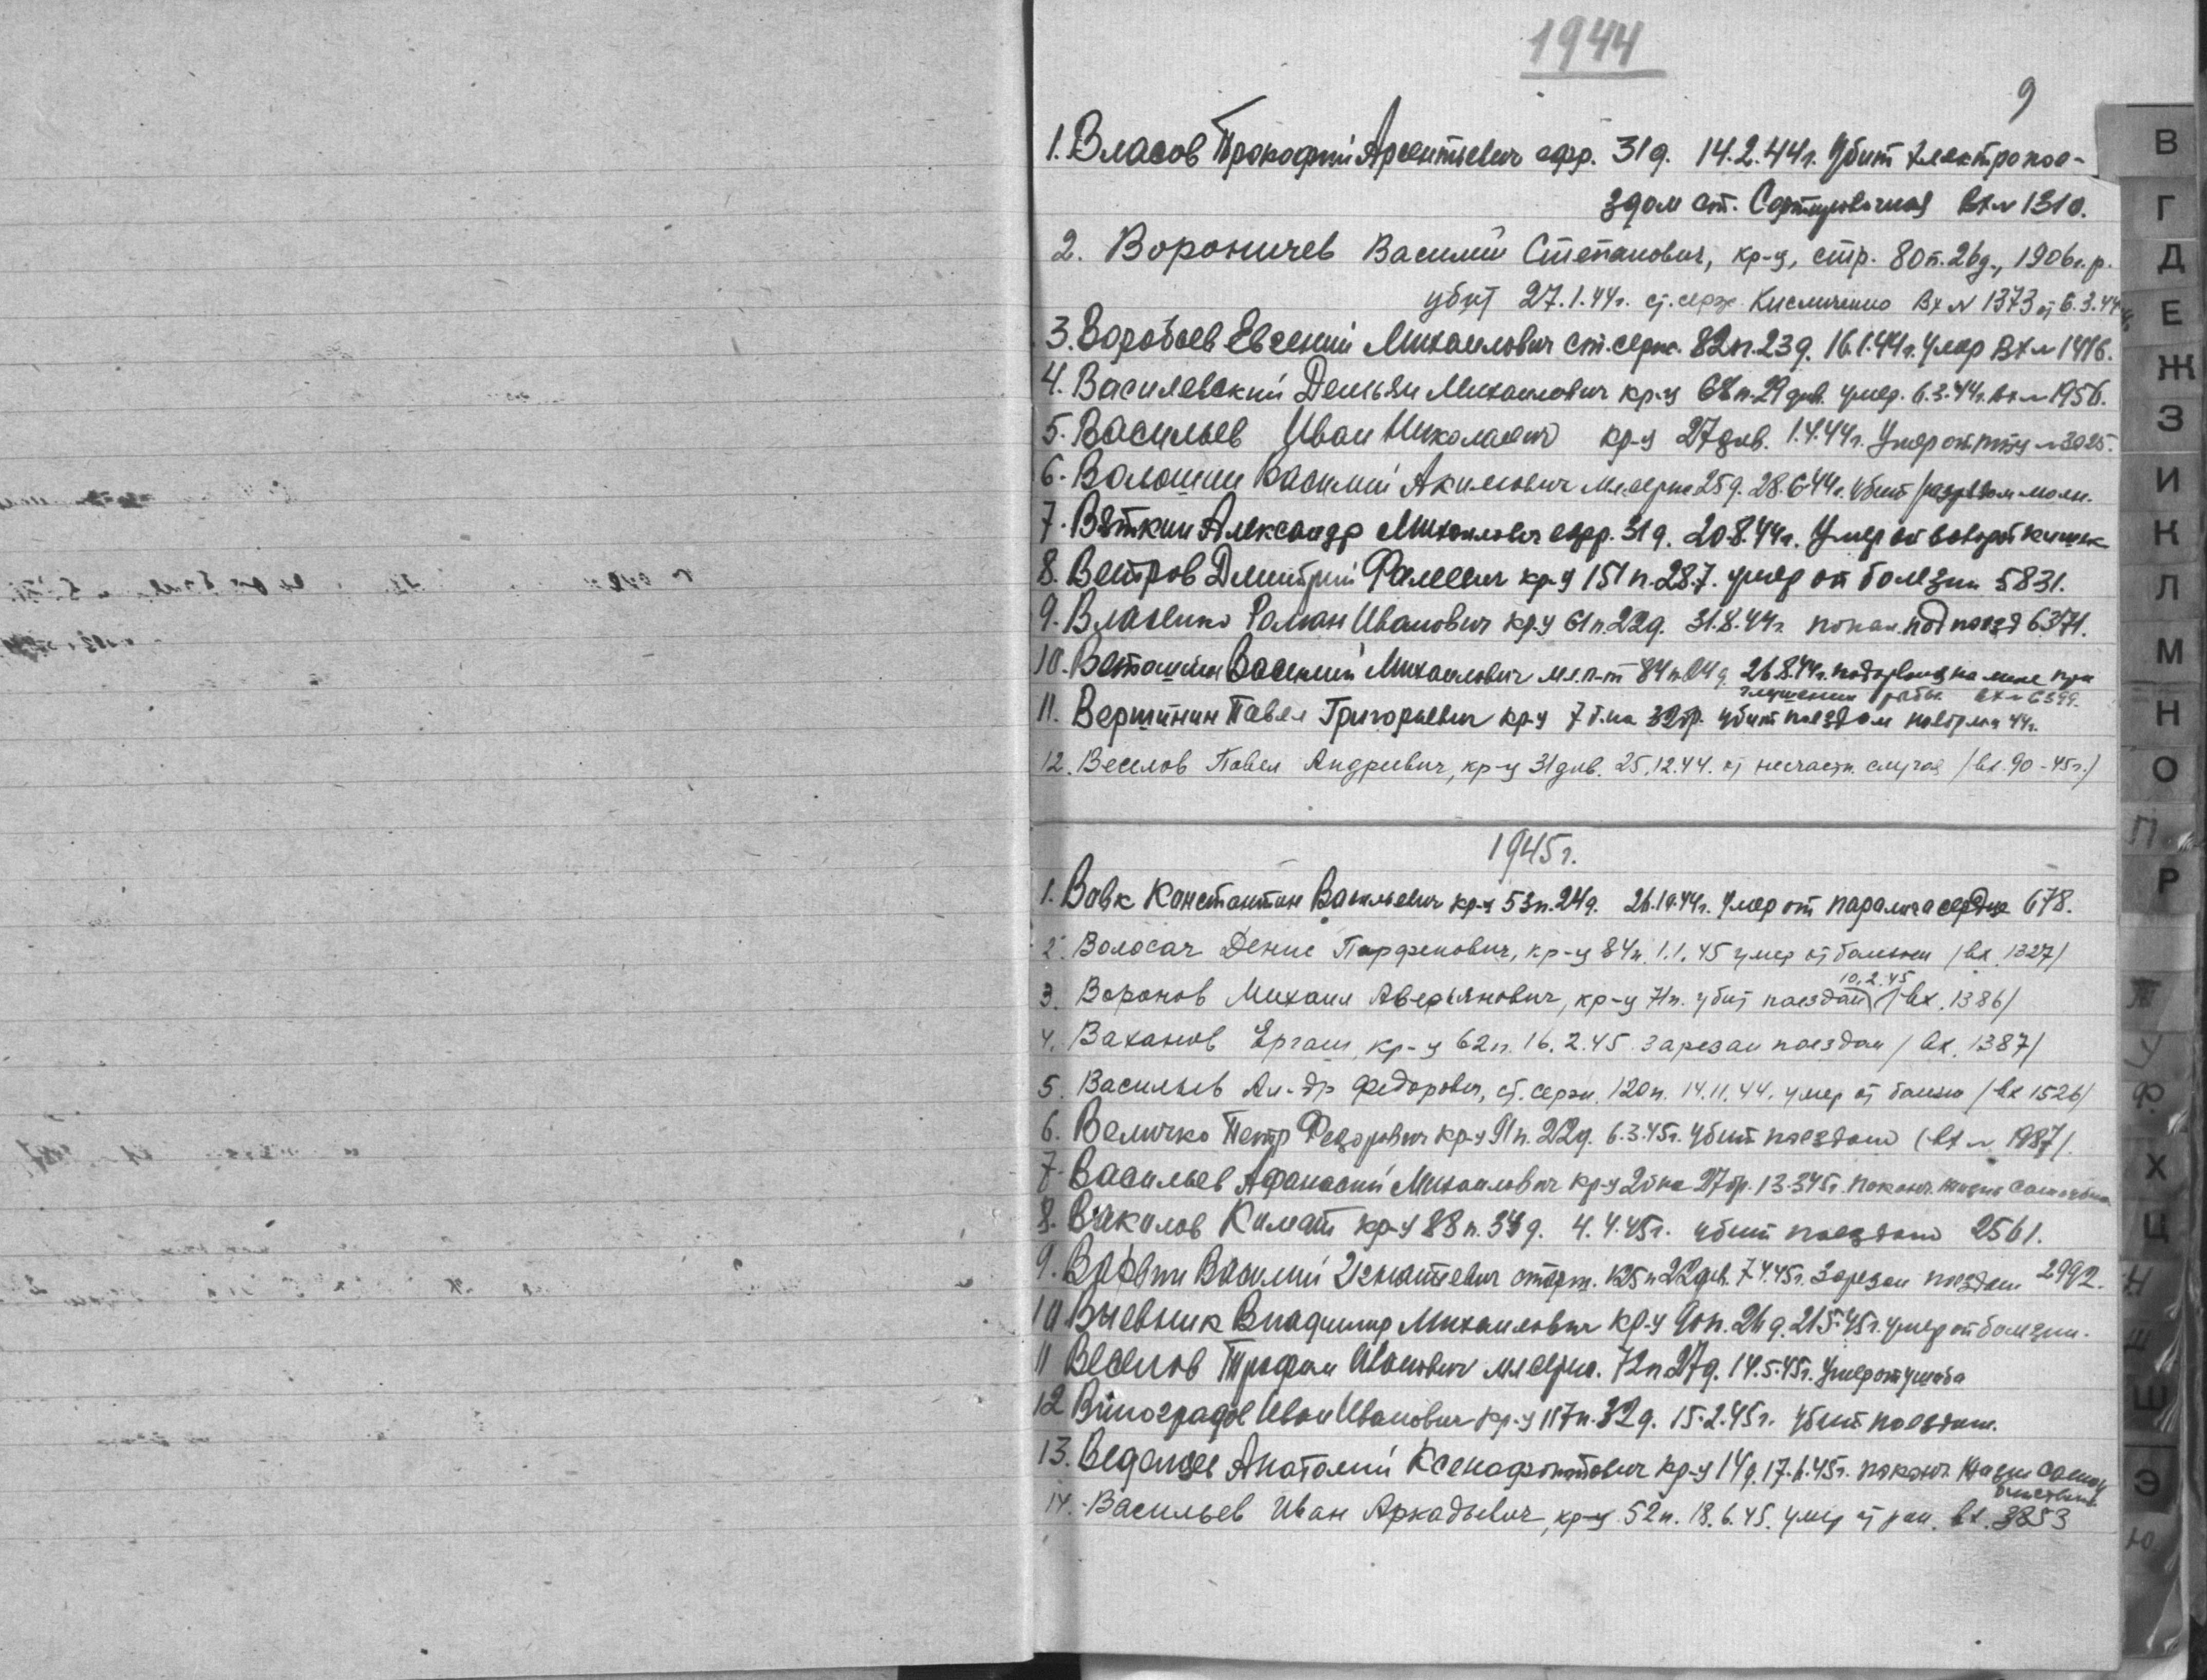 1944
9
1. Власов Прокофий Арсентьевич ефр. 31 д. 14.2.44г. Убит электропое-
здом ст. Сортировочная Вх № 1310.
2. Вороничев Василий Степанович, кр-ц, стр. 80 п. 26 д., 1906 г.р.
убит 27.1.44г. ст. серж. Кисличенко Вх № 1373 от 6.3.44
3. Воробьев Евгений Михаилович ст. серж. 82 п. 23 д. 16.1.44г. Умер Вх № 1476.
4. Василевский Демьян Михаилович кр-ц 68 п. 29 див. умер. 6.3.44г. вх № 1956.
5. Васильев Иван Николаевич кр-ц 27 див. 1.4.44г. Умер от № 3025.
6. Волошин Василий Акимович мл. серж 25 д. 28.6.44г. Убит разрядом молн.
7. Вяткин Александр Михаилович ефр. 31 д. 20.8.44г. Умер от заворот кишек
8. Ветров Дмитрий кр-ц 151 п. 28.7. умер от болезни 5831.
9. Власенко Роман Иванович кр-ц 61 п. 22 д. 31.8.44г. попал под поезд 6371.
10. Ветошкин Василий Михаилович мл. л-т 84 п. 26.8.44г. подорвался на мине при
глушении рыбы вх № 6399.
11. Вершинин Павел Григорьевич кр-ц 7 б-на 32 бр. убит поездом 44г.
12. Веселов Павел Андреевич, кр-ц 31 див. 25.12.44. от несчастн. случая /вх. 90-45г./
1945г.
1. Вовк Константин Васильевич кр-ц 53 п. 24 д. 26.10.44г. Умер от паралича сердца 678.
2. Волосач Денис Парфенович, кр-ц 84 п. 1.1.45 умер от болезни /вх. 1327/
10.2.45
3. Воронов Михаил Аверьянович, кр-ц 71 п. убит поездом /вх. 1386/
4. Ваханов Ергаш, кр-ц 62 п. 16.2.45 зарезан поездом /вх. 1387/
5. Васильев Ал-др Федорович, ст. серж. 120 п. 14.11.44. умер от болезн /вх 1526/
6. Величко Петр Федорович кр-ц 91 п. 22 д. 6.3.45г. убит поездом (вх № 1987/.
7. Васильев Афанасий Михаилович кр-ц 2 б-на 27 бр. 13.3.45г. поконч. жизнь
8. Вакилов кр-ц 88 п. 34 д. 4.4.45г. убит поездом 2561.
9. Василий Игнатьевич 125 п 22 див. 7.4.45г. Зарезан поездом 2992.
10 Владимир Михаилович кр-ц 90 п. 26 д. 21.5.45г. умер от болезни.
11 Веселов Трофим Иванович мл серж. 72 п 27 д. 14.5.45г. Умер от ушиба
12 Виноградов Иван Иванович кр-ц 117 п. 32 д. 15.2.45г. убит поездом.
13. Анатолий Ксенофонтович кр-ц 14 д. 17.6.45г. поконч. жизнь самоу
бийством
14. Васильев Иван Аркадьевич, кр-ц 52 п. 18.6.45. умер от ран. вх. 3853
В
Г
Д
Е
Ж
З
И
К
Л
М
Н
О
П
Р
У
Ф
Х
Ц
Ч
Ш
Э
Ю